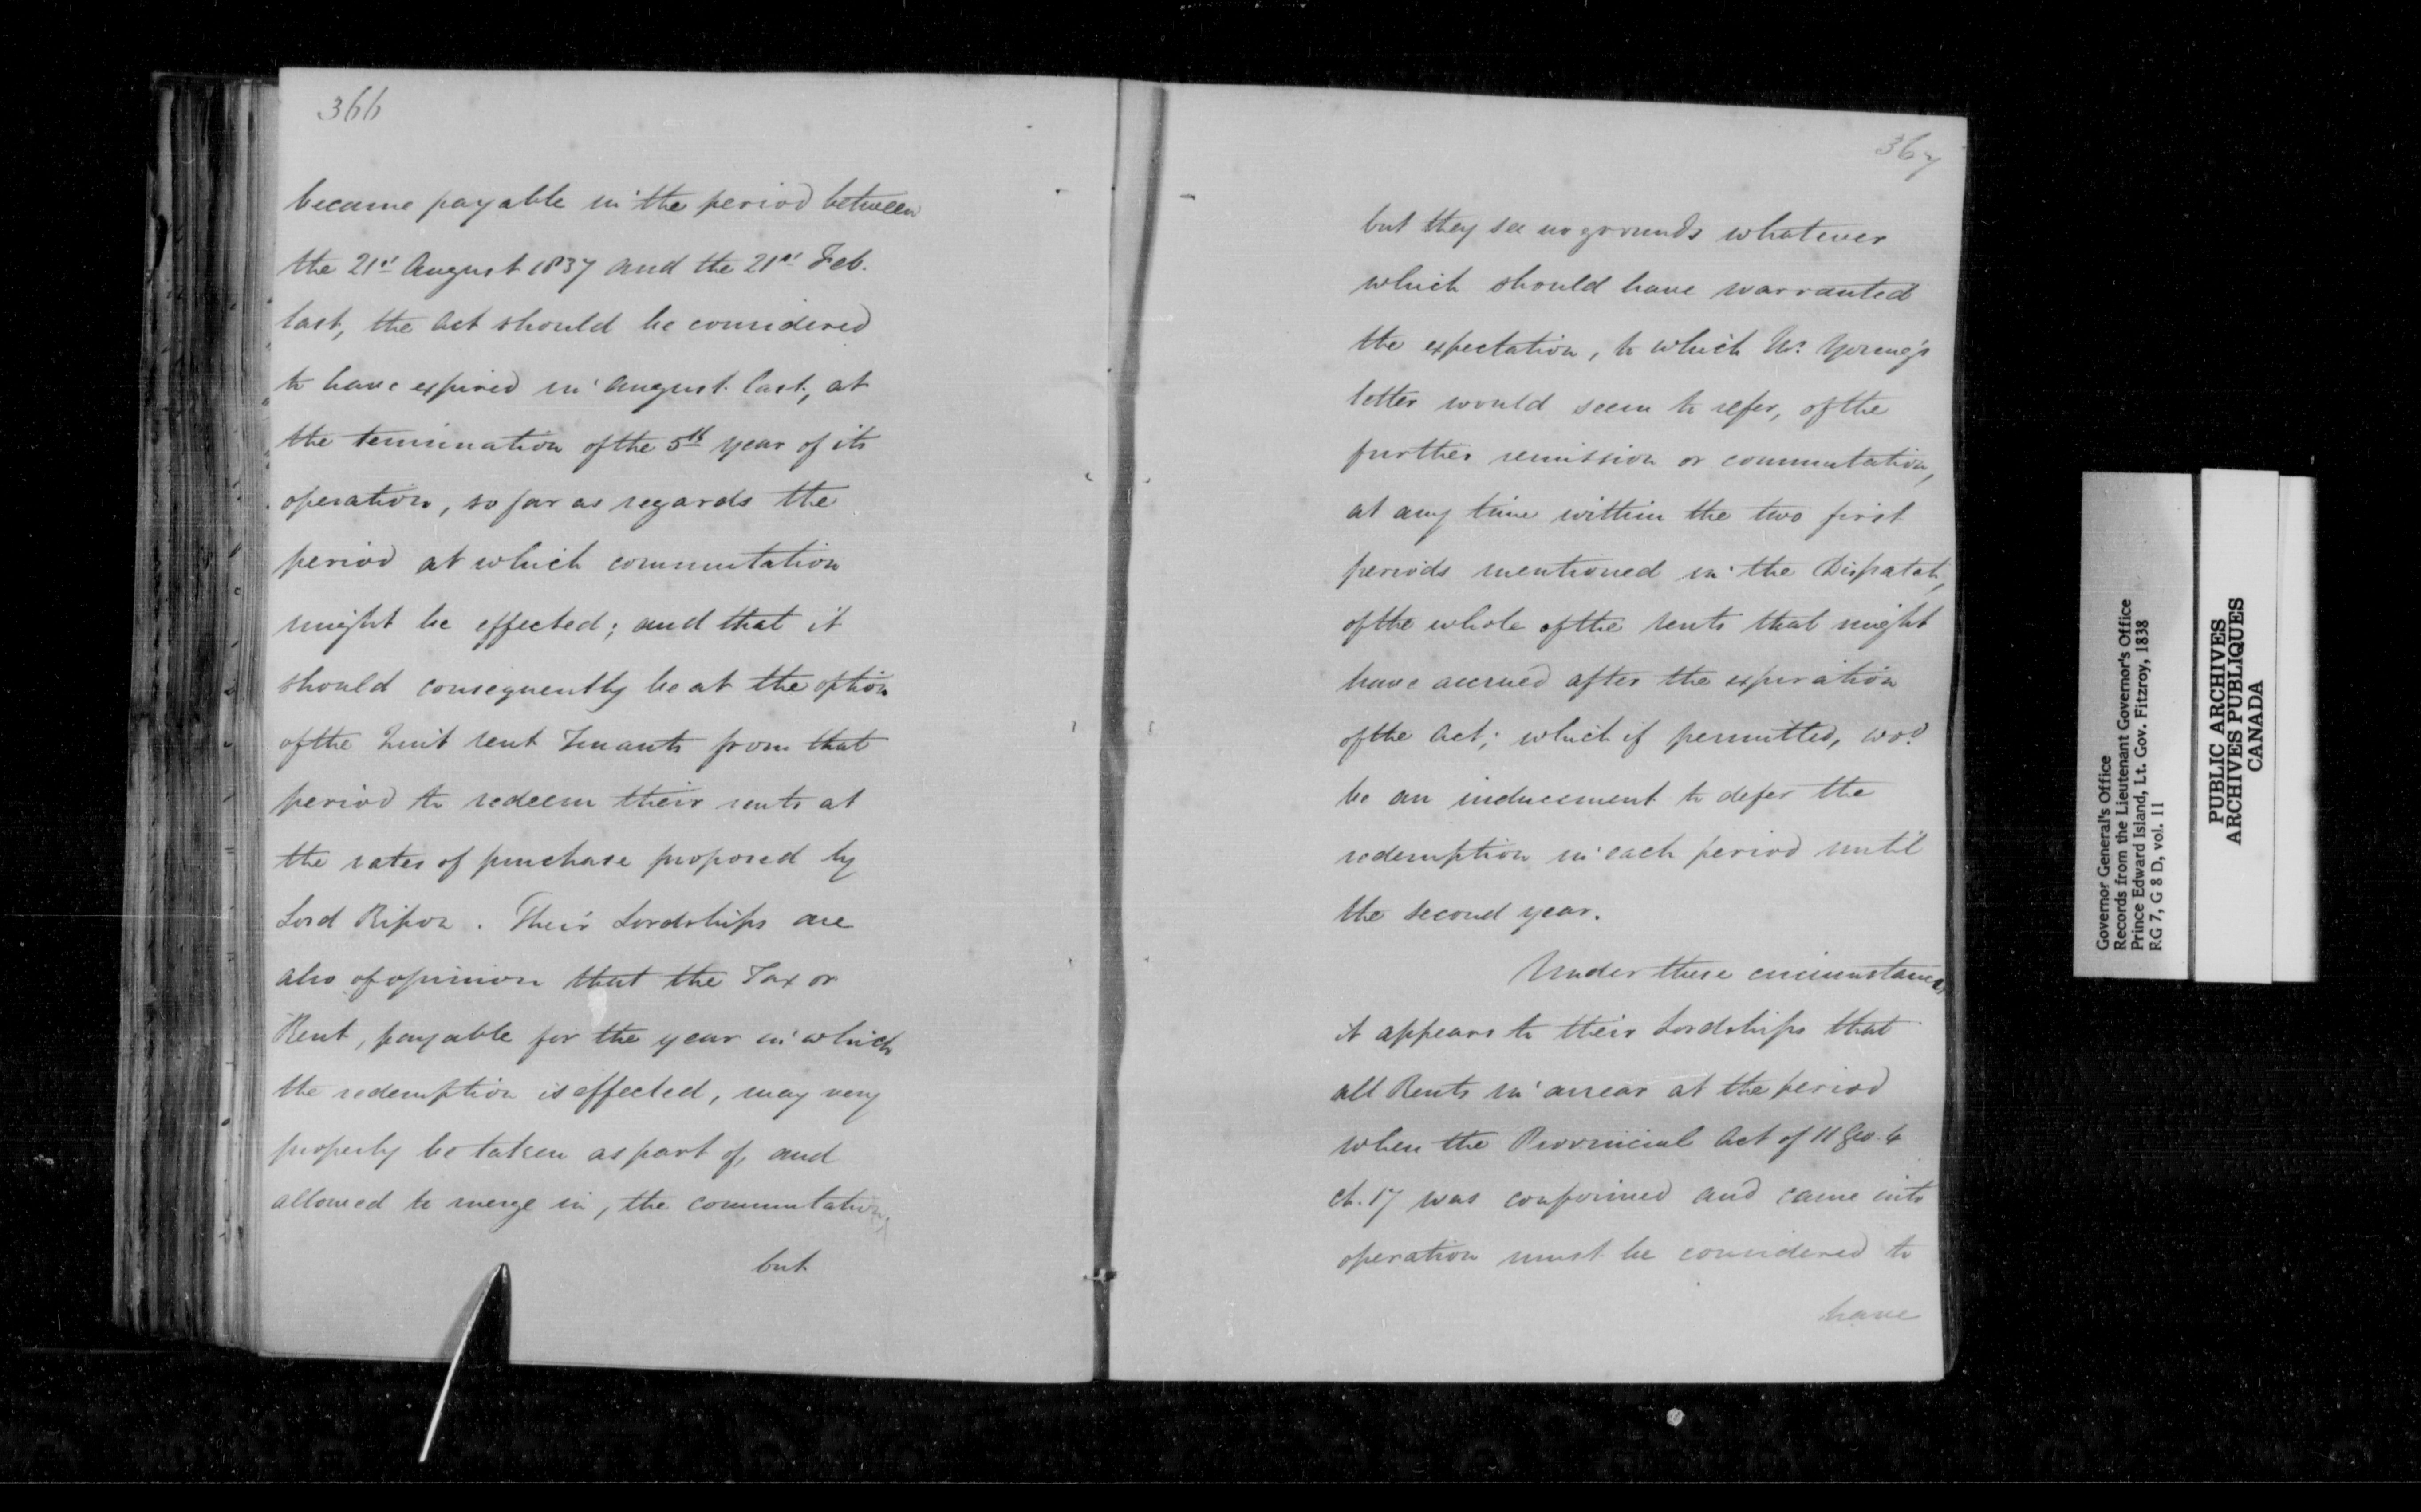 366
became payable in the period between
the 21st August 1837 and the 21st Feb.
last, the Act should be considered
to have expired in August last, at
the termination of the 5th year of its
operation, so far as regards the
period at which commutation
might be effected; and that it
should consequently be at the option
of the Quit rent Tenants from that
period to redeem their rents at
the rates of purchase proposed by
Lord Ripon. Their Lordships are
also of opinion that the Tax or
Rent, payable for the year in which
the redemption is effected, may very
properly be taken as part of, and
allowed to merge in, the commutation;
but
367
but they see no grounds whatever
which should have warranted
the expectation, to which Mr. Young's
letter would seem to refer, of the
further remission or commutation,
at any time within the two first
periods mentioned in the Dispatch,
of the whole of the rents that might
have accrued after the expiration
of the Act; which if permitted, wod
be an inducement to defer the
redemption in each period until
the second year.
Under these circumstances,
it appears to their Lordships that
all Rents in arrear at the period
when the Provincial Act of 11 Geo. 4
ch. 17 was confirmed and came into
operation must be considered to
have
Governor General's Office
Records from the Lieutenant Governor's Office
Prince Edward Island, Lt. Gov. Fitzroy, 1838
RG 7, G 8 D, vol. 11
PUBLIC ARCHIVES
ARCHIVES PUBLIQUES
CANADA